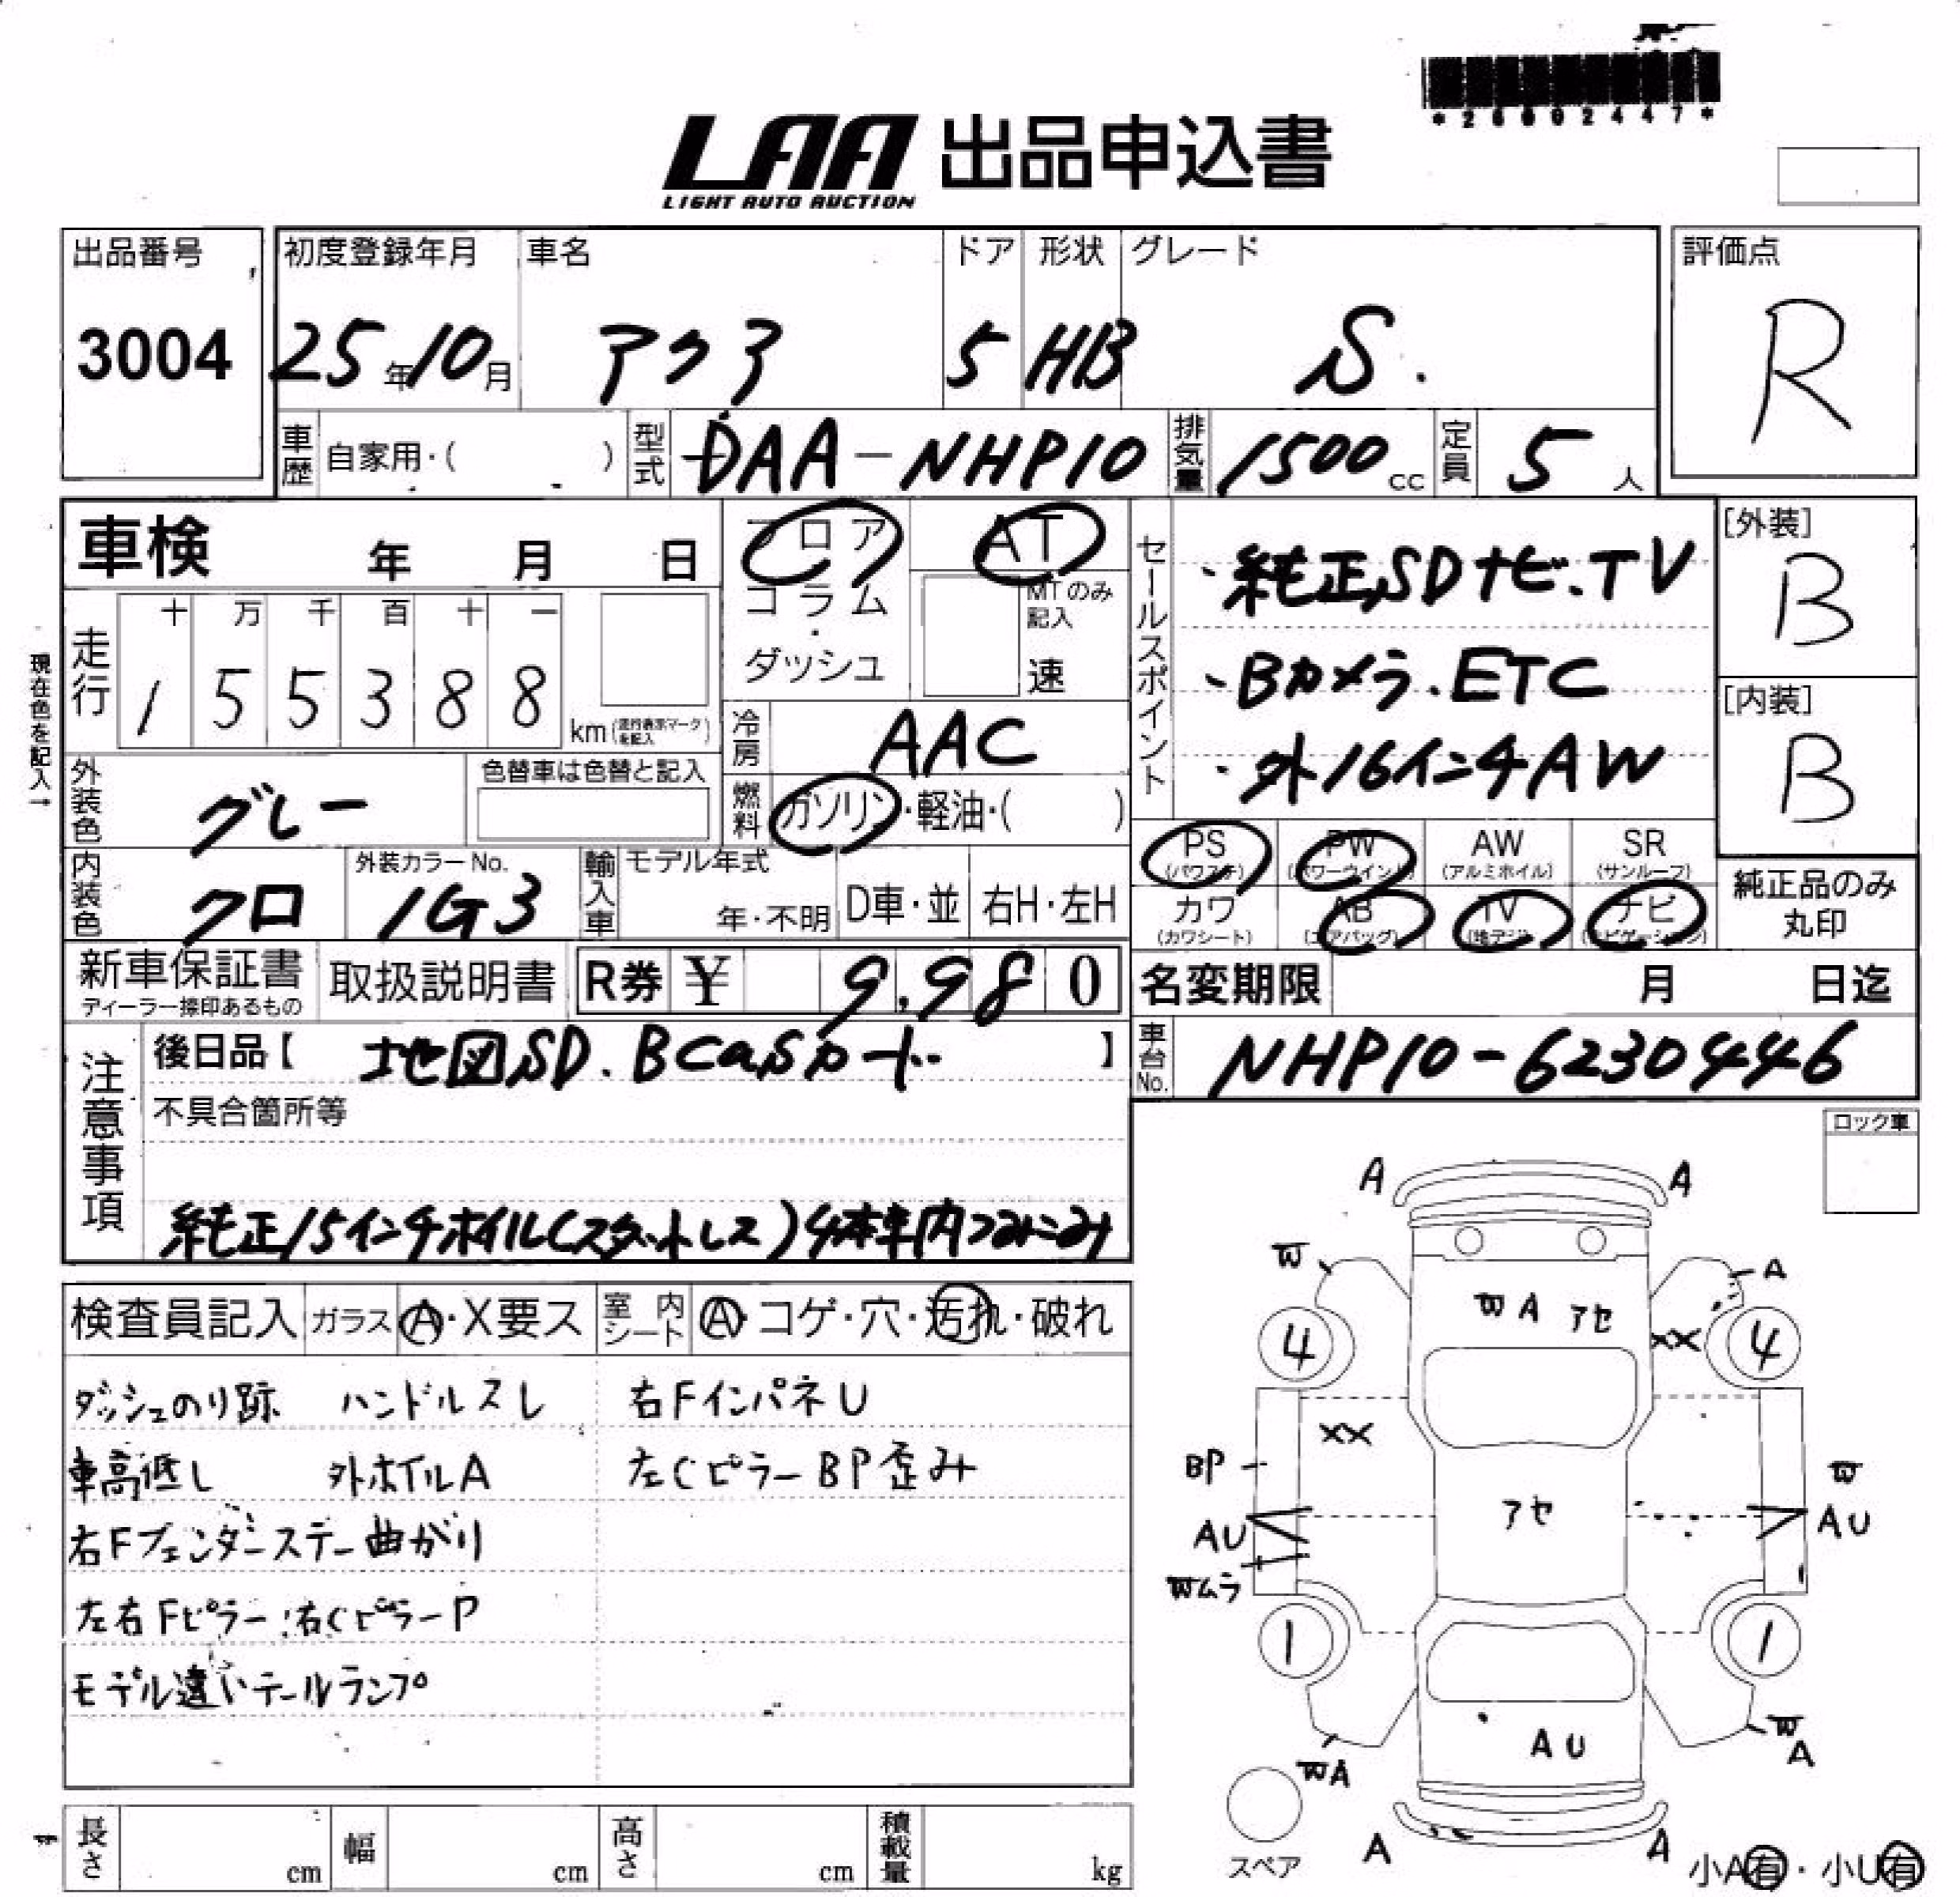 *26002447*
LAA 出品申込書
LIGHT AUTO AUCTION
出品番号
3004
初度登録年月
25年10月
車名
アクア
ドア
5
形状
HB
グレード
S.
評価点
R
車歴 自家用・( )
型式 DAA-NHP10
排気量 1500cc
定員 5人
車検 年 月 日
現在色を記入→
走行
十 万 千 百 十 一
1 5 5 3 8 8
km(走行表示マークを記入)
フロア
コラム
・
ダッシュ
AT
MTのみ記入
速
冷房 AAC
燃料 ガソリン・軽油・( )
セールスポイント
・純正SDナビ.TV
・Bカメラ.ETC
・外16インチAW
[外装]
B
[内装]
B
外装色 グレー
色替車は色替と記入
内装色 クロ
外装カラーNo.
1G3
輸入車 モデル年式
年・不明
D車・並 右H・左H
PS
(パワステ)
PW
(パワーウインド)
AW
(アルミホイル)
SR
(サンルーフ)
カワ
(カワシート)
AB
(エアバッグ)
TV
(地デジ)
ナビ
(ナビゲーション)
純正品のみ
丸印
新車保証書
ディーラー捺印あるもの
取扱説明書
R券 ¥ 9,980
名変期限 月 日迄
車台No. NHP10-6230446
注意事項
後日品【 地図SD.BCasカード 】
不具合箇所等
純正15インチホイル(スタットレス)4本車内つみこみ
ロック車
検査員記入 ガラス A・X要ス 室内シート A・コゲ・穴・汚れ・破れ
ダッシュのり跡 ハンドルスレ 右FインパネU
車高低し 外ホイルA 左CピラーBP歪み
右Fフェンダーステー曲がり
左右Fピラー!右CピラーP
モデル違いテールランプ
A A
W A
W A アセ
4 XX 4
XX
BP W
アセ
AU AU
Wムラ
1 1
AU
WA W A
スペア
A A
小A有・小U有
長さ cm 幅 cm 高さ cm 積載量 kg